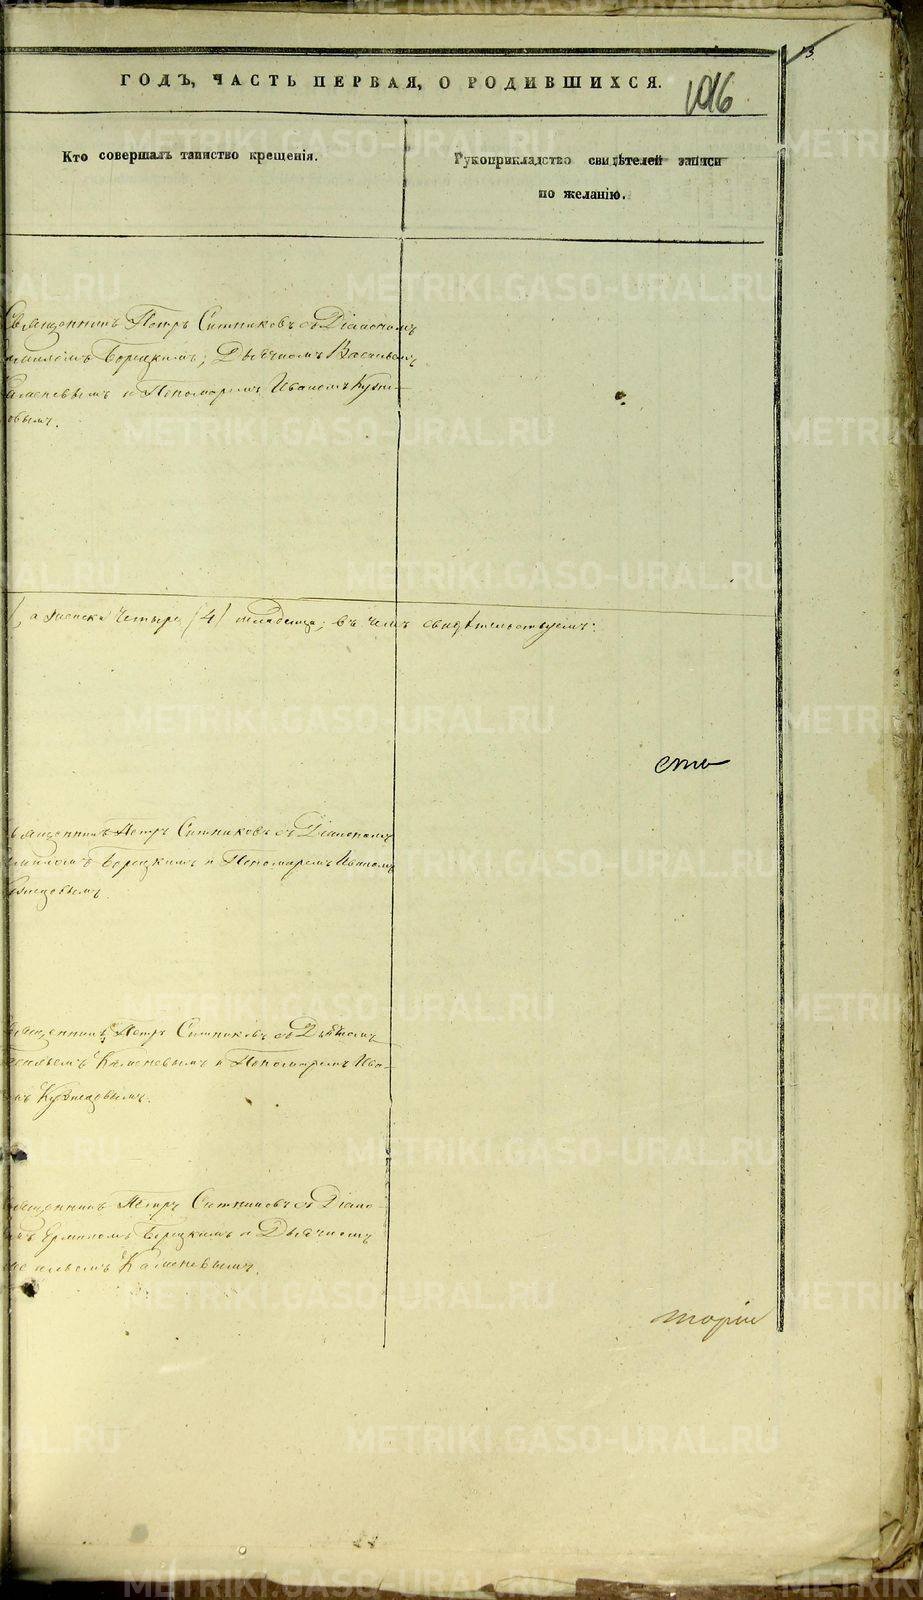 ГОДЪ, ЧАСТЬ ПЕРВАЯ, О РОДИВШИХСЯ.
1016
13.
Кто совершалъ таинство крещенія.
Рукоприкладство свидѣтелей записи
по желанію.
Священникъ Петръ Ситниковъ съ Діакономъ
Ермиломъ Борецкимъ, Дьячкомъ Василіемъ
Каменевымъ и Пономаремъ Иваномъ Кузне-
цовымъ.
а женска четыре (4) младенца; въ чемъ свидѣтельствуемъ:
сть
Священникъ Петръ Ситниковъ съ Діакономъ
Ермиломъ Борецкимъ и Пономаремъ Иваномъ
Кузнецовымъ.
Священникъ Петръ Ситниковъ съ Дьячкомъ
Васильемъ Каменевымъ и Пономаремъ Ива-
номъ Кузнецовымъ.
Священникъ Петръ Ситниковъ съ Діако-
номъ Ермиломъ Борецкимъ и Дьячкомъ
Васильемъ Каменевымъ.
торіи
METRIKI.GASO-URAL.RU